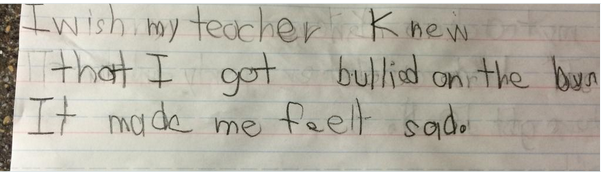 I wish my teacher Knew
that I got bullied on the bus
It made me feelt sad.